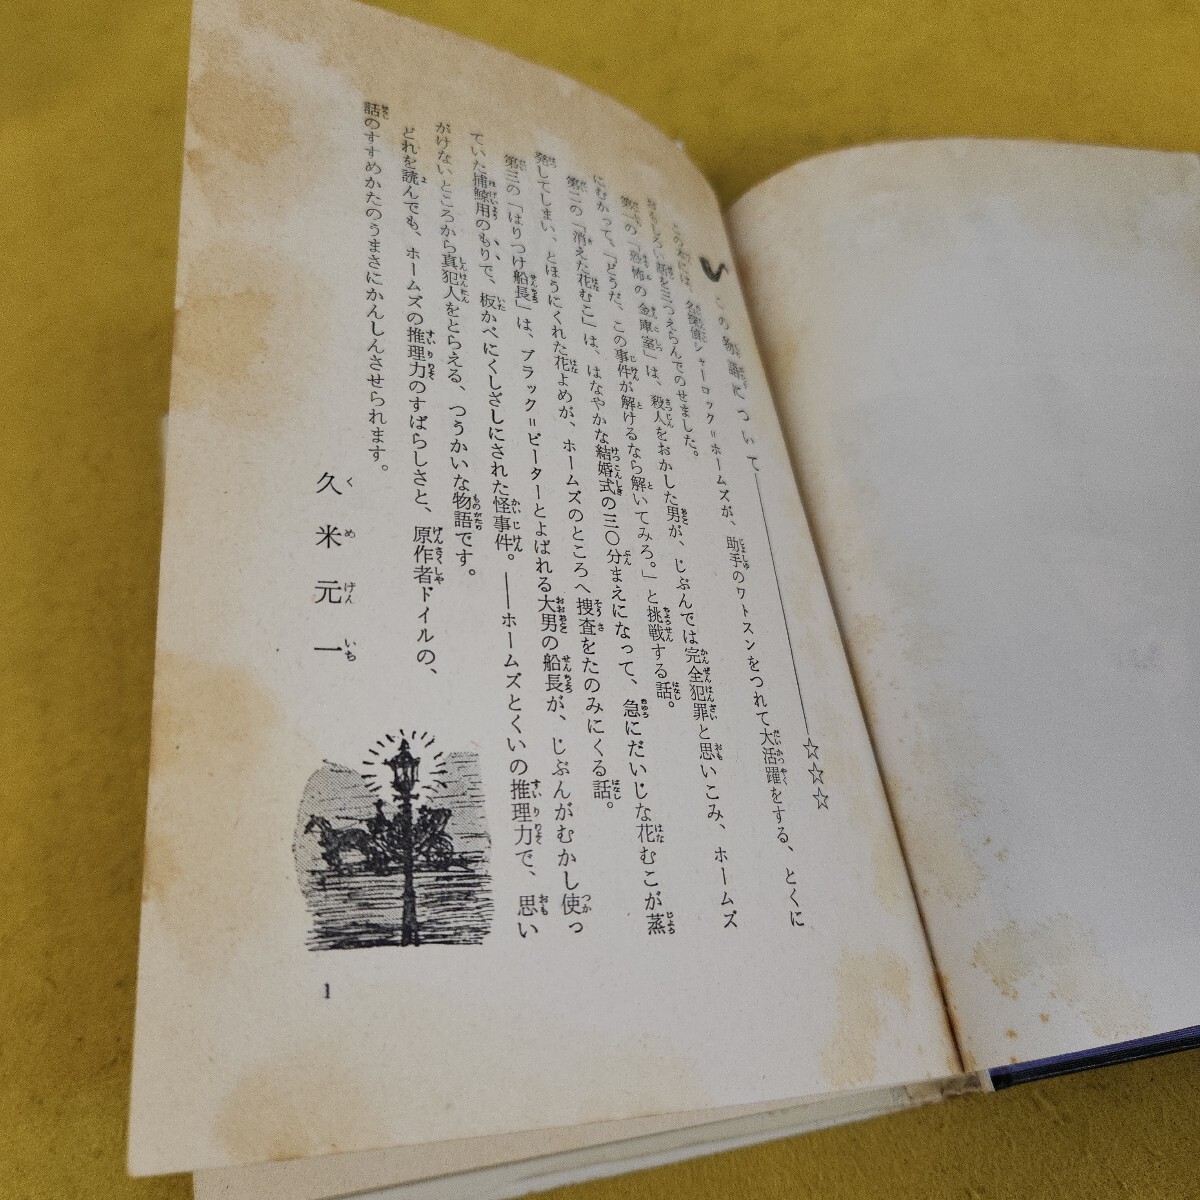 この物語について――☆☆☆
この本には、名探偵シャーロック＝ホームズが、助手のワトスンをつれて大活躍をする、とくに
おもしろい話を三つえらんでのせました。
第一の「恐怖の金庫室」は、殺人をおかした男が、じぶんでは完全犯罪と思いこみ、ホームズ
にむかって、「どうだ、この事件が解けるなら解いてみろ。」と挑戦する話。
第二の「消えた花むこ」は、はなやかな結婚式の三〇分まえになって、急にだいじな花むこが蒸
発してしまい、とほうにくれた花よめが、ホームズのところへ捜査をたのみにくる話。
第三の「はりつけ船長」は、ブラック＝ピーターとよばれる大男の船長が、じぶんがむかし使っ
ていた捕鯨用のもりで、板かべにくしざしにされた怪事件。――ホームズとくいの推理力で、思い
がけないところから真犯人をとらえる、つうかいな物語です。
どれを読んでも、ホームズの推理力のすばらしさと、原作者ドイルの、
話のすすめかたのうまさにかんしんさせられます。
久米元一
1